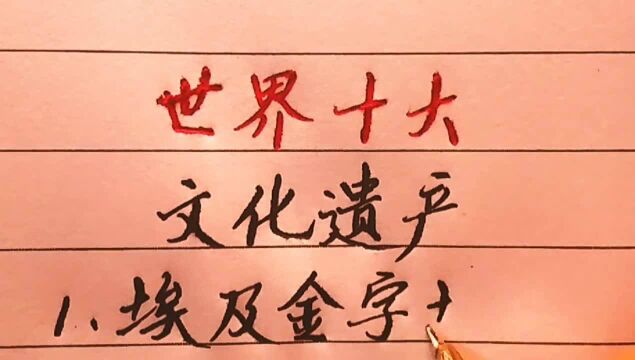 世界十大
文化遗产
1、埃及金字